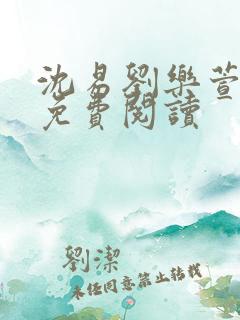 沈易劉樂萱
免費閱讀
劉潔
未经同意禁止转载